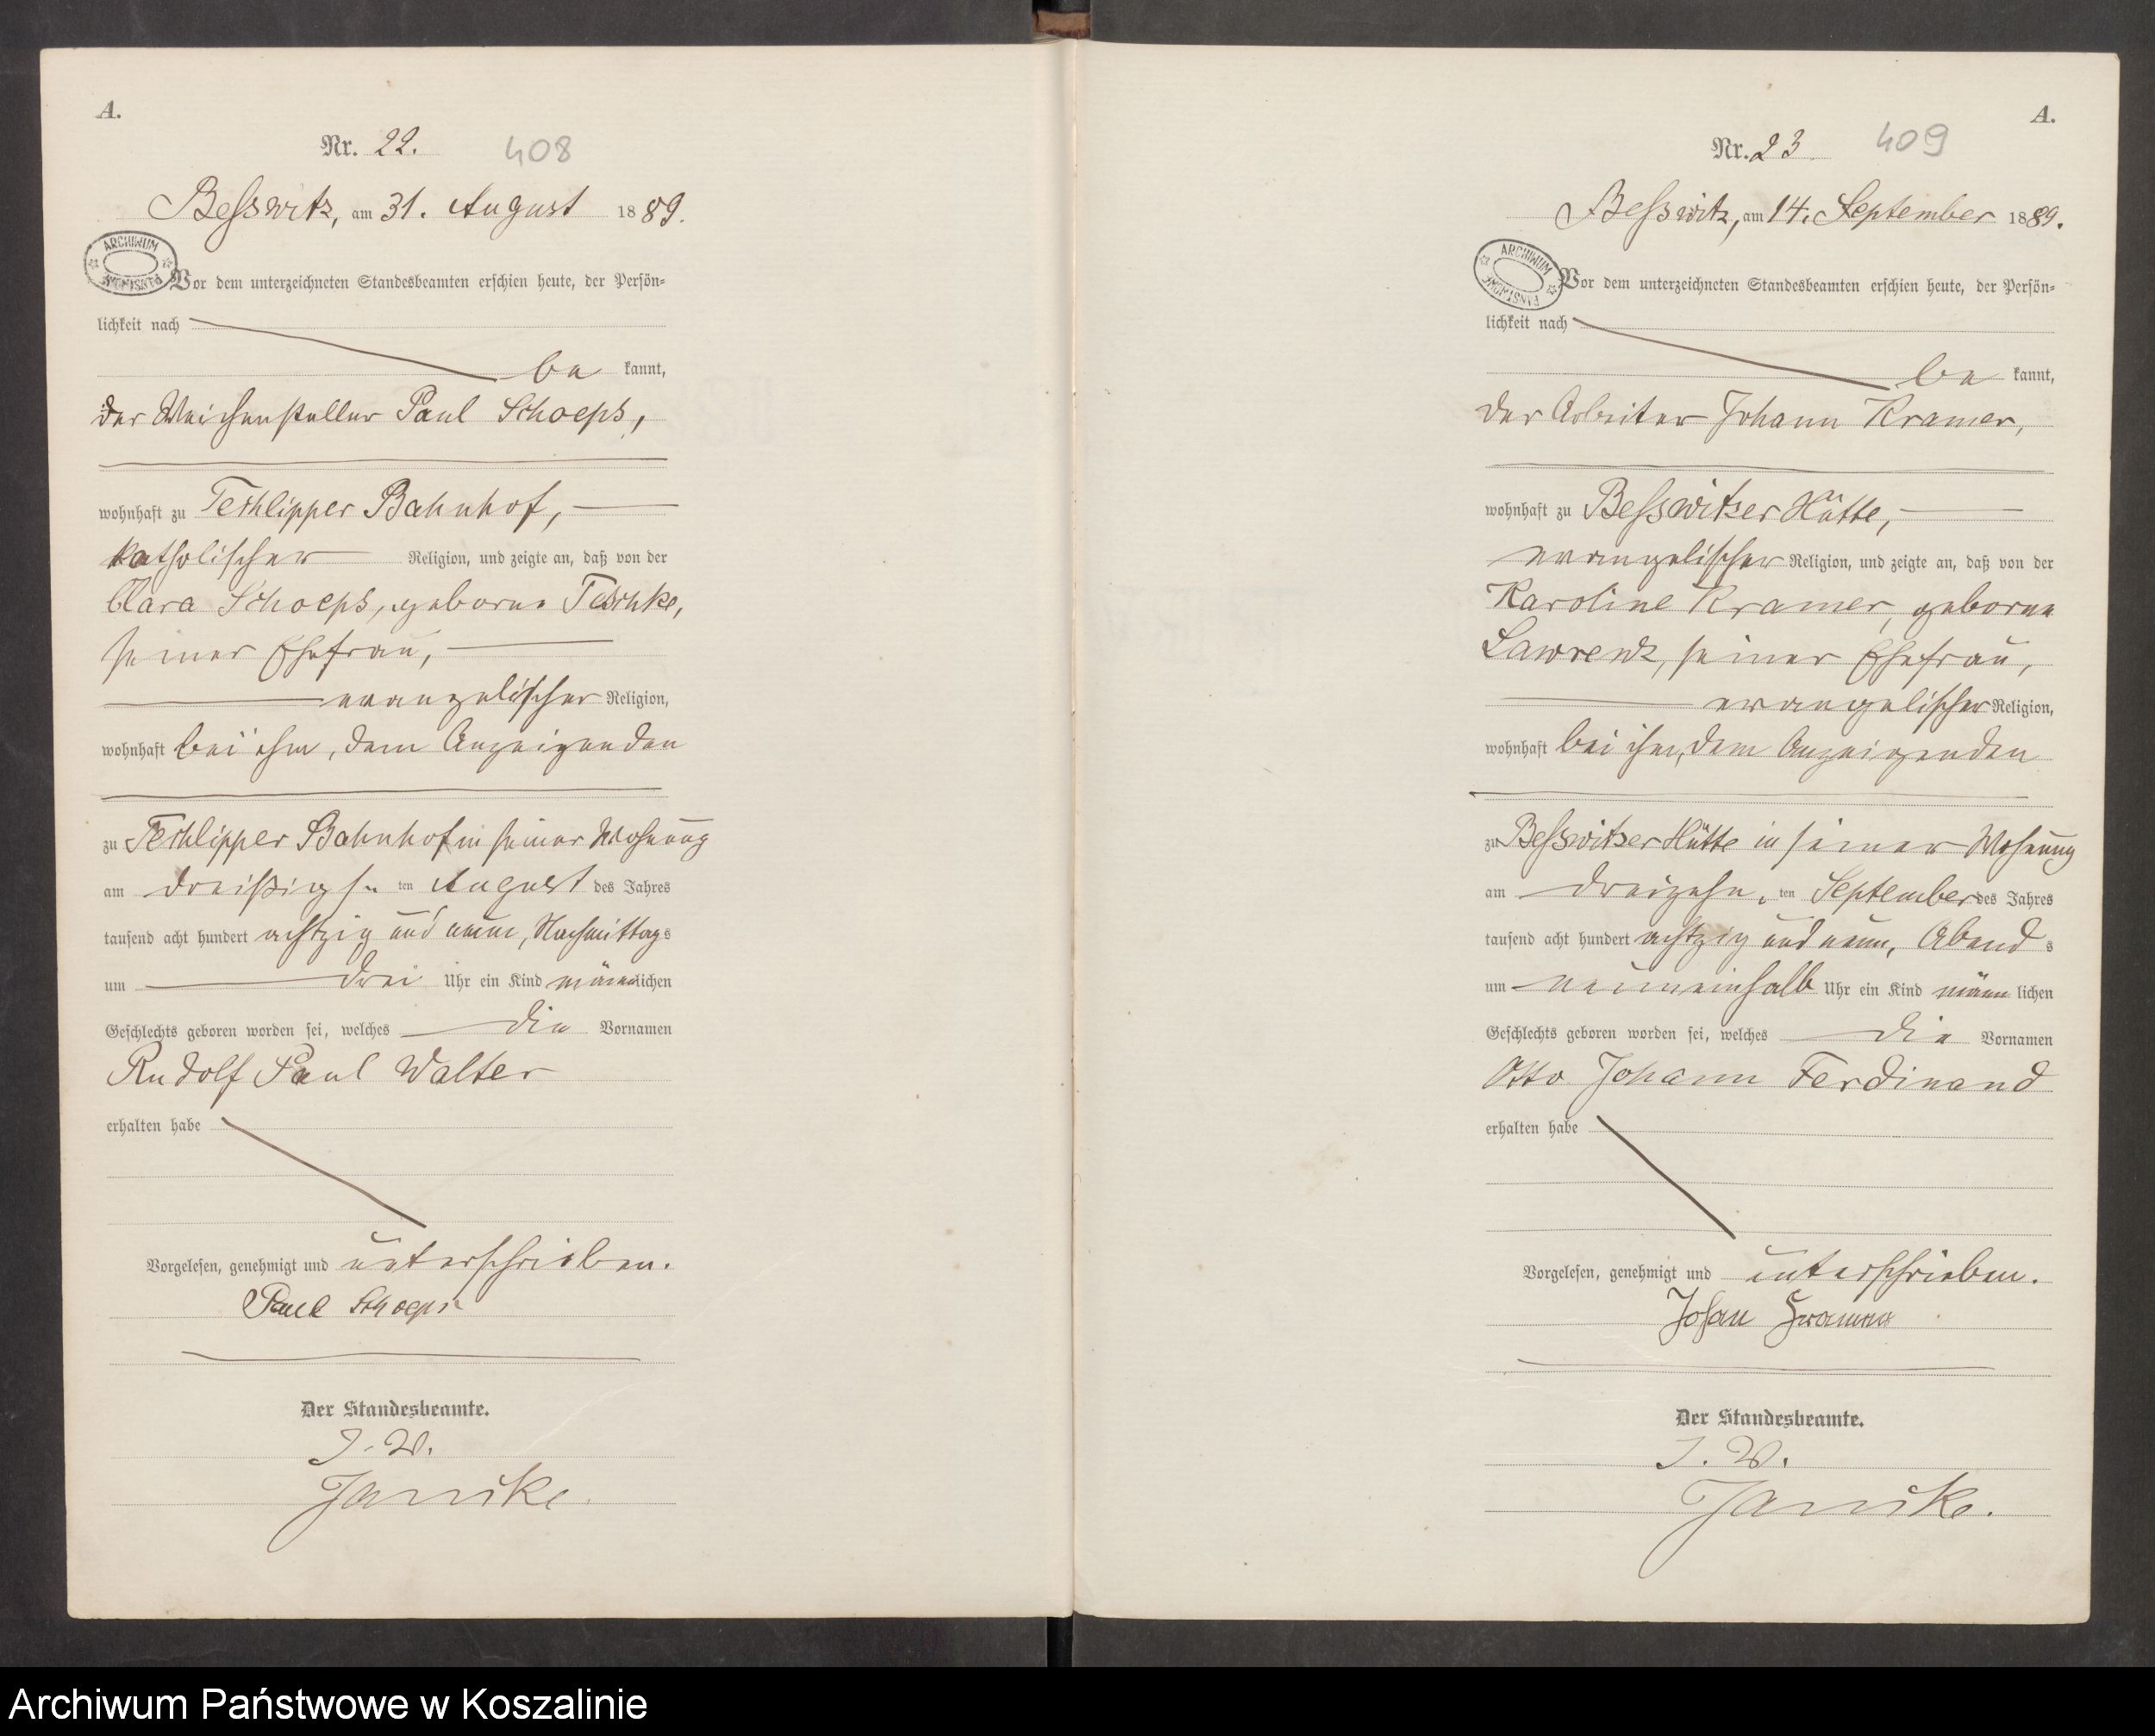 A.
Nr. 22. 408
Besswitz, am 31. August 1889.
ARCHIWUM PAŃSTWOWE
Vor dem unterzeichneten Standesbeamten erschien heute, der Persön-
lichkeit nach
be kannt,
der Weichensteller Paul Schoeps,
wohnhaft zu Techlipper Bahnhof,
katholischer Religion, und zeigte an, daß von der
Clara Schoeps, geborne Teschke,
seiner Ehefrau,
evangelischer Religion,
wohnhaft bei ihm, dem Anzeigenden
zu Techlipper Bahnhof in seiner Wohnung
am dreißigs ten August des Jahres
tausend acht hundert achtzig und neun, Nachmittags
um drei Uhr ein Kind männlichen
Geschlechts geboren worden sei, welches die Vornamen
Rudolf Paul Walter
erhalten habe
Vorgelesen, genehmigt und unterschrieben.
Paul Schoeps
Der Standesbeamte.
J. V.
A.
Nr. 23 409
Besswitz, am 14. September 1889.
ARCHIWUM PAŃSTWOWE
Vor dem unterzeichneten Standesbeamten erschien heute, der Persön-
lichkeit nach
be kannt,
der Arbeiter Johann Kramer,
wohnhaft zu Besswitzer Hütte,
evangelischer Religion, und zeigte an, daß von der
Karoline Kramer, geborne
Lawrenz, seiner Ehefrau,
evangelischer Religion,
wohnhaft bei ihm, dem Anzeigenden
zu Besswitzer Hütte in seiner Wohnung
am dreizehn ten September des Jahres
tausend acht hundert achtzig und neun, Abend s
um neuneinhalb Uhr ein Kind männ lichen
Geschlechts geboren worden sei, welches die Vornamen
Otto Johann Ferdinand
erhalten habe
Vorgelesen, genehmigt und unterschrieben.
Johan
Der Standesbeamte.
J. V.
Archiwum Państwowe w Koszalinie